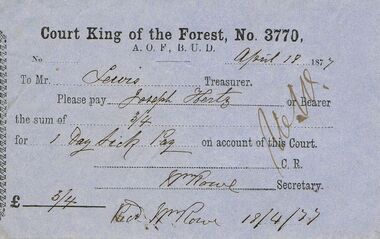 Court King of the Forest, No. 3770,
A. O. F., B. U. D.
No April 18 1877
To Mr. Lewis Treasurer.
Please pay Joseph Hertz or Bearer
the sum of 3/4
for 1 Day Sick Pay on account of this Court.
C. R.
Wm Rowe Secretary.
£ 3/4
Wm Rowe 18/4/77